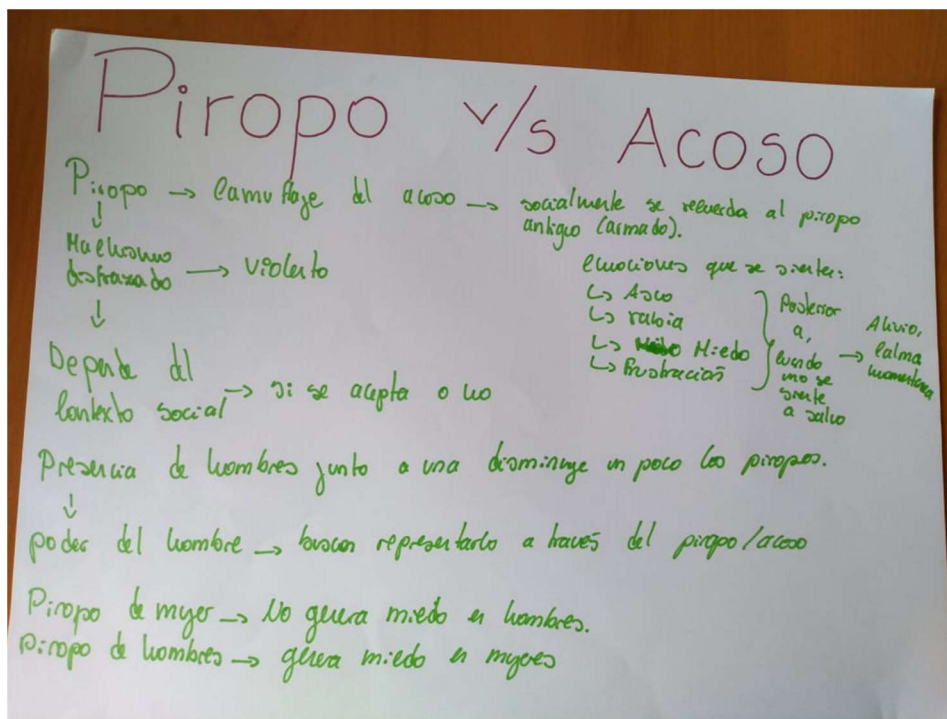 Piropo v/s Acoso
Piropo → Camuflaje del acoso → socialmente se recuerda al piropo
antiguo (armado).
↓
Machismo
disfrazado → violento
↓
Depende del
contexto social → si se acepta o no
emociones que se sienten:
↳ Asco
↳ rabia
↳ Miedo
↳ frustración
Posterior
a,
cuando
uno se
siente
a salvo
→ Alivio,
calma
momentánea
Presencia de hombres junto a una disminuye un poco los piropos.
↓
poder del hombre → buscan representarlo a través del piropo/acoso
Piropo de mujer → No genera miedo en hombres.
piropo de hombres → genera miedo en mujeres